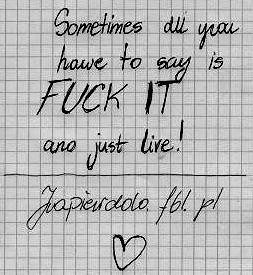 Sometimes all you
have to say is
FUCK IT
and just live!
Japierdolo.fbl.pl